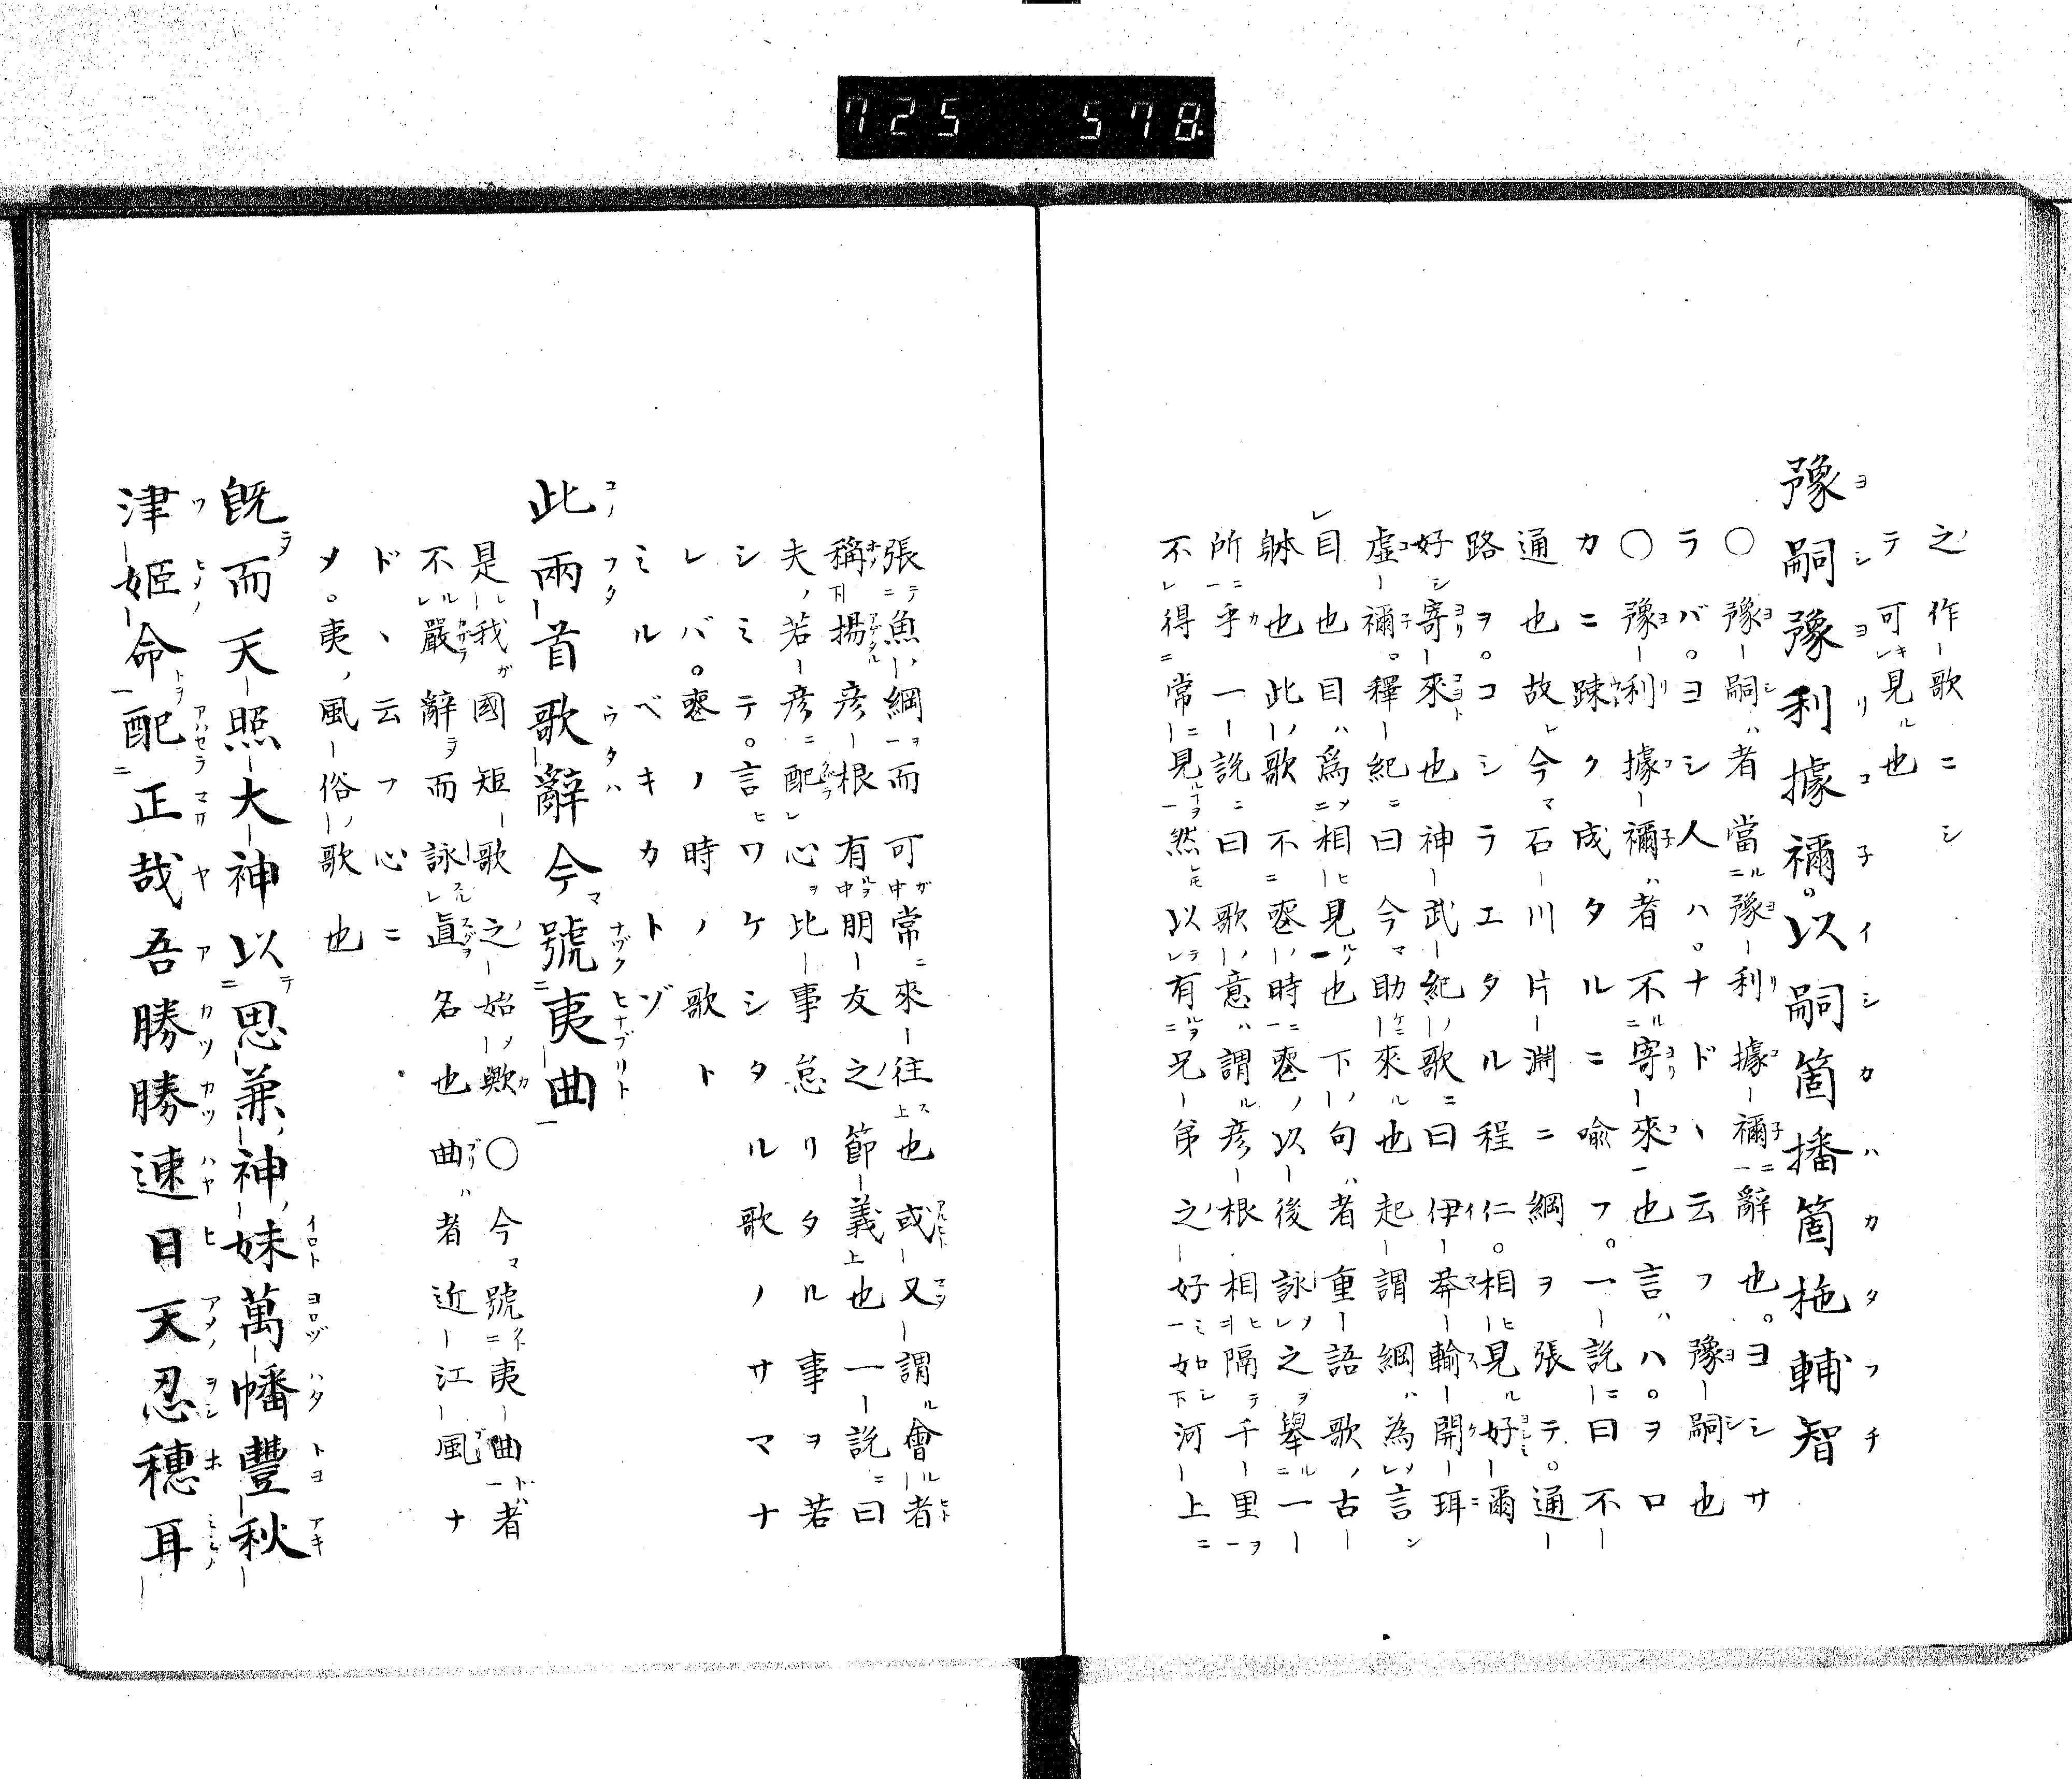 725 578
之作歌ニシ
テ可見也
豫嗣豫利據禰。以嗣箇播箇柂輔智
○豫嗣者當豫利據禰辭也。ヨシサ
ラバ。ヨシ人ハ。ナドヽ云フ豫嗣也
○豫利據禰者不寄來也言ハ。ヲロ
カニ踈ク成タルニ喩フ。一說曰不
通也故今石川片淵ニ綱ヲ張テ。通
路ヲ。コシラエタル程仁。相見好爾
好寄來也神武紀歌曰伊莽輸開珥
虛禰。釋紀曰今助來也起謂綱為言
目也目爲相見也下句者重語歌古
躰也此歌不喪時喪以後詠之舉一
所乎一說曰歌意謂彦根相隔千里
不得常見然以有兄弟之好如河上
張魚綱而可常來往也或又謂會者
稱揚彦根有朋友之節義也一說曰
夫若彦配心比事怠リタル事ヲ若
シミテ。言ワケシタル歌ノサマナ
レバ。喪ノ時ノ歌ト
ミルベキカトゾ
此兩首歌辭今號夷曲
是我國短歌之始歟○今號夷曲者
不嚴辭而詠眞名也曲者近江風ナ
ドヽ云フ心ニ
メ。夷風俗歌也
既而天照大神以思兼神妹萬幡豐秋
津姬命配正哉吾勝勝速日天忍穗耳